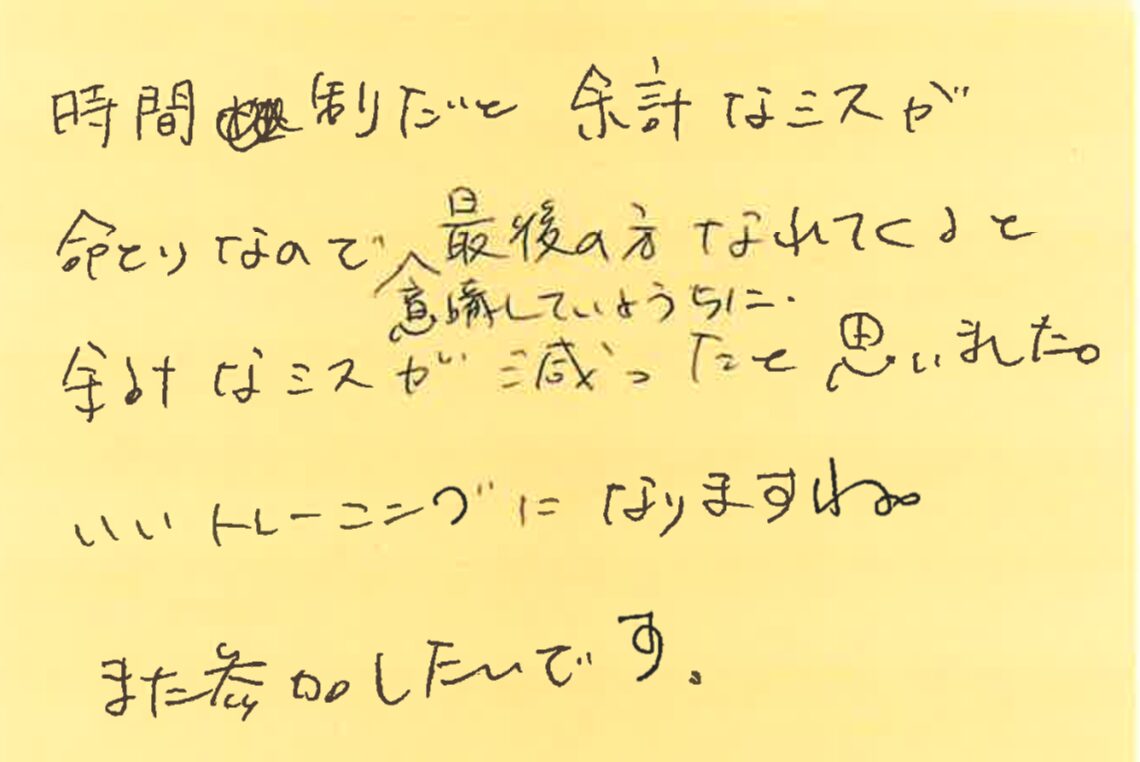 時間制だと 余計なミスが
命とりなので 最後の方 なれてくると
意識していようちに.
余計なミスが減ったと思いました。
いいトレーニングになりますね。
また参加したいです.